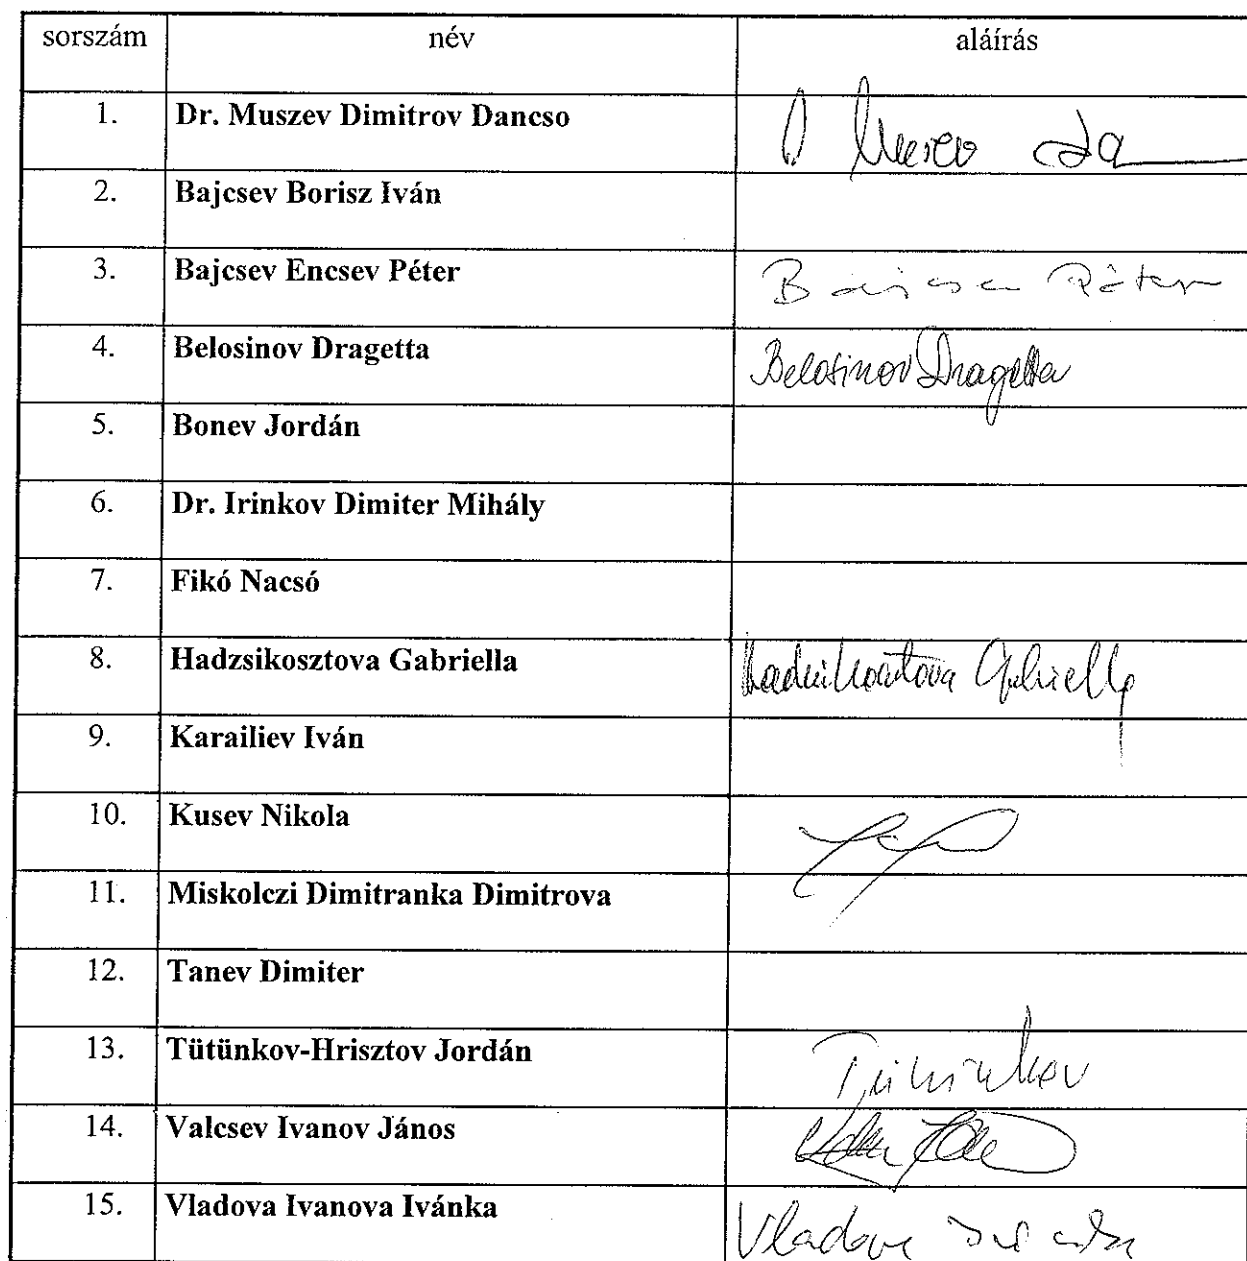 sorszám név aláírás
1. Dr. Muszev Dimitrov Dancso
2. Bajcsev Borisz Iván
3. Bajcsev Encsev Péter Péter
4. Belosinov Dragetta Belosinov Dragetta
5. Bonev Jordán
6. Dr. Irinkov Dimiter Mihály
7. Fikó Nacsó
8. Hadzsikosztova Gabriella Hadzsikosztova Gabriella
9. Karailiev Iván
10. Kusev Nikola
11. Miskolczi Dimitranka Dimitrova
12. Tanev Dimiter
13. Tütünkov-Hrisztov Jordán Tütünkov
14. Valcsev Ivanov János
15. Vladova Ivanova Ivánka Vladova